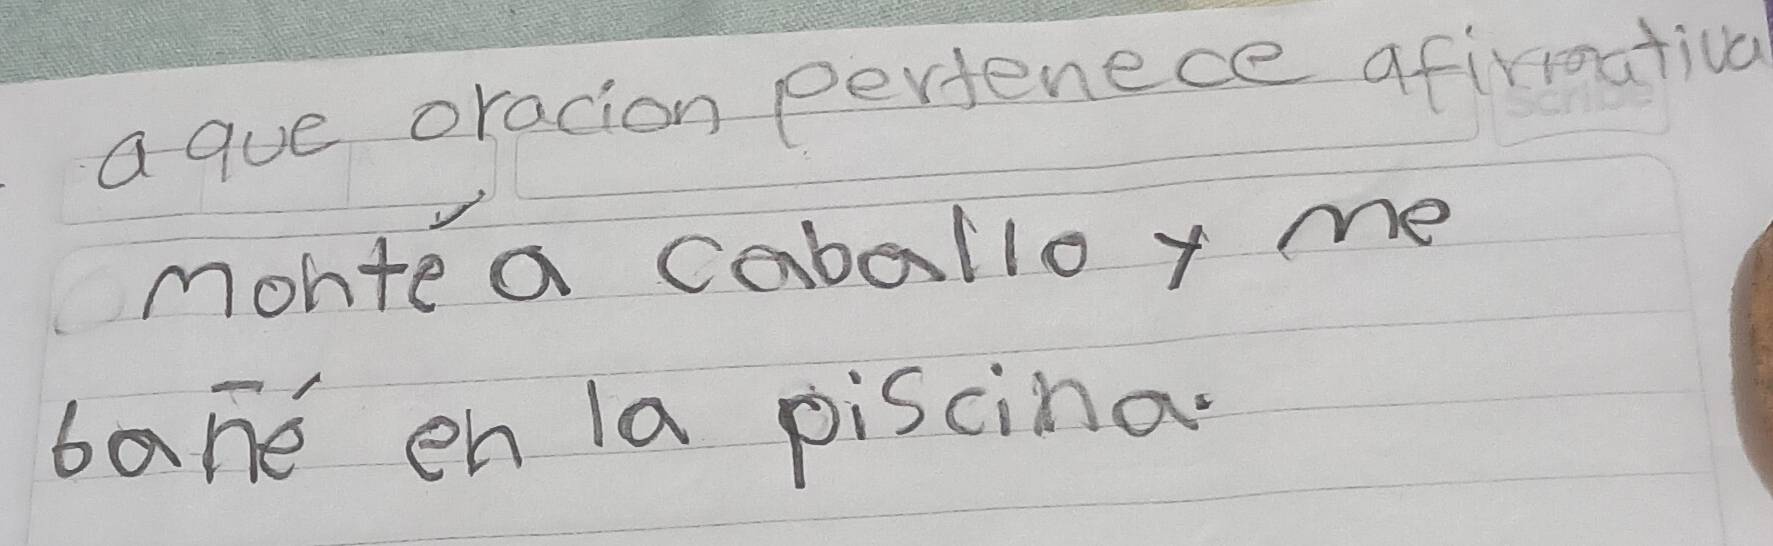 a que oracion pertenece afirmativa
Monté a caballo y me
bañé en la piscina.